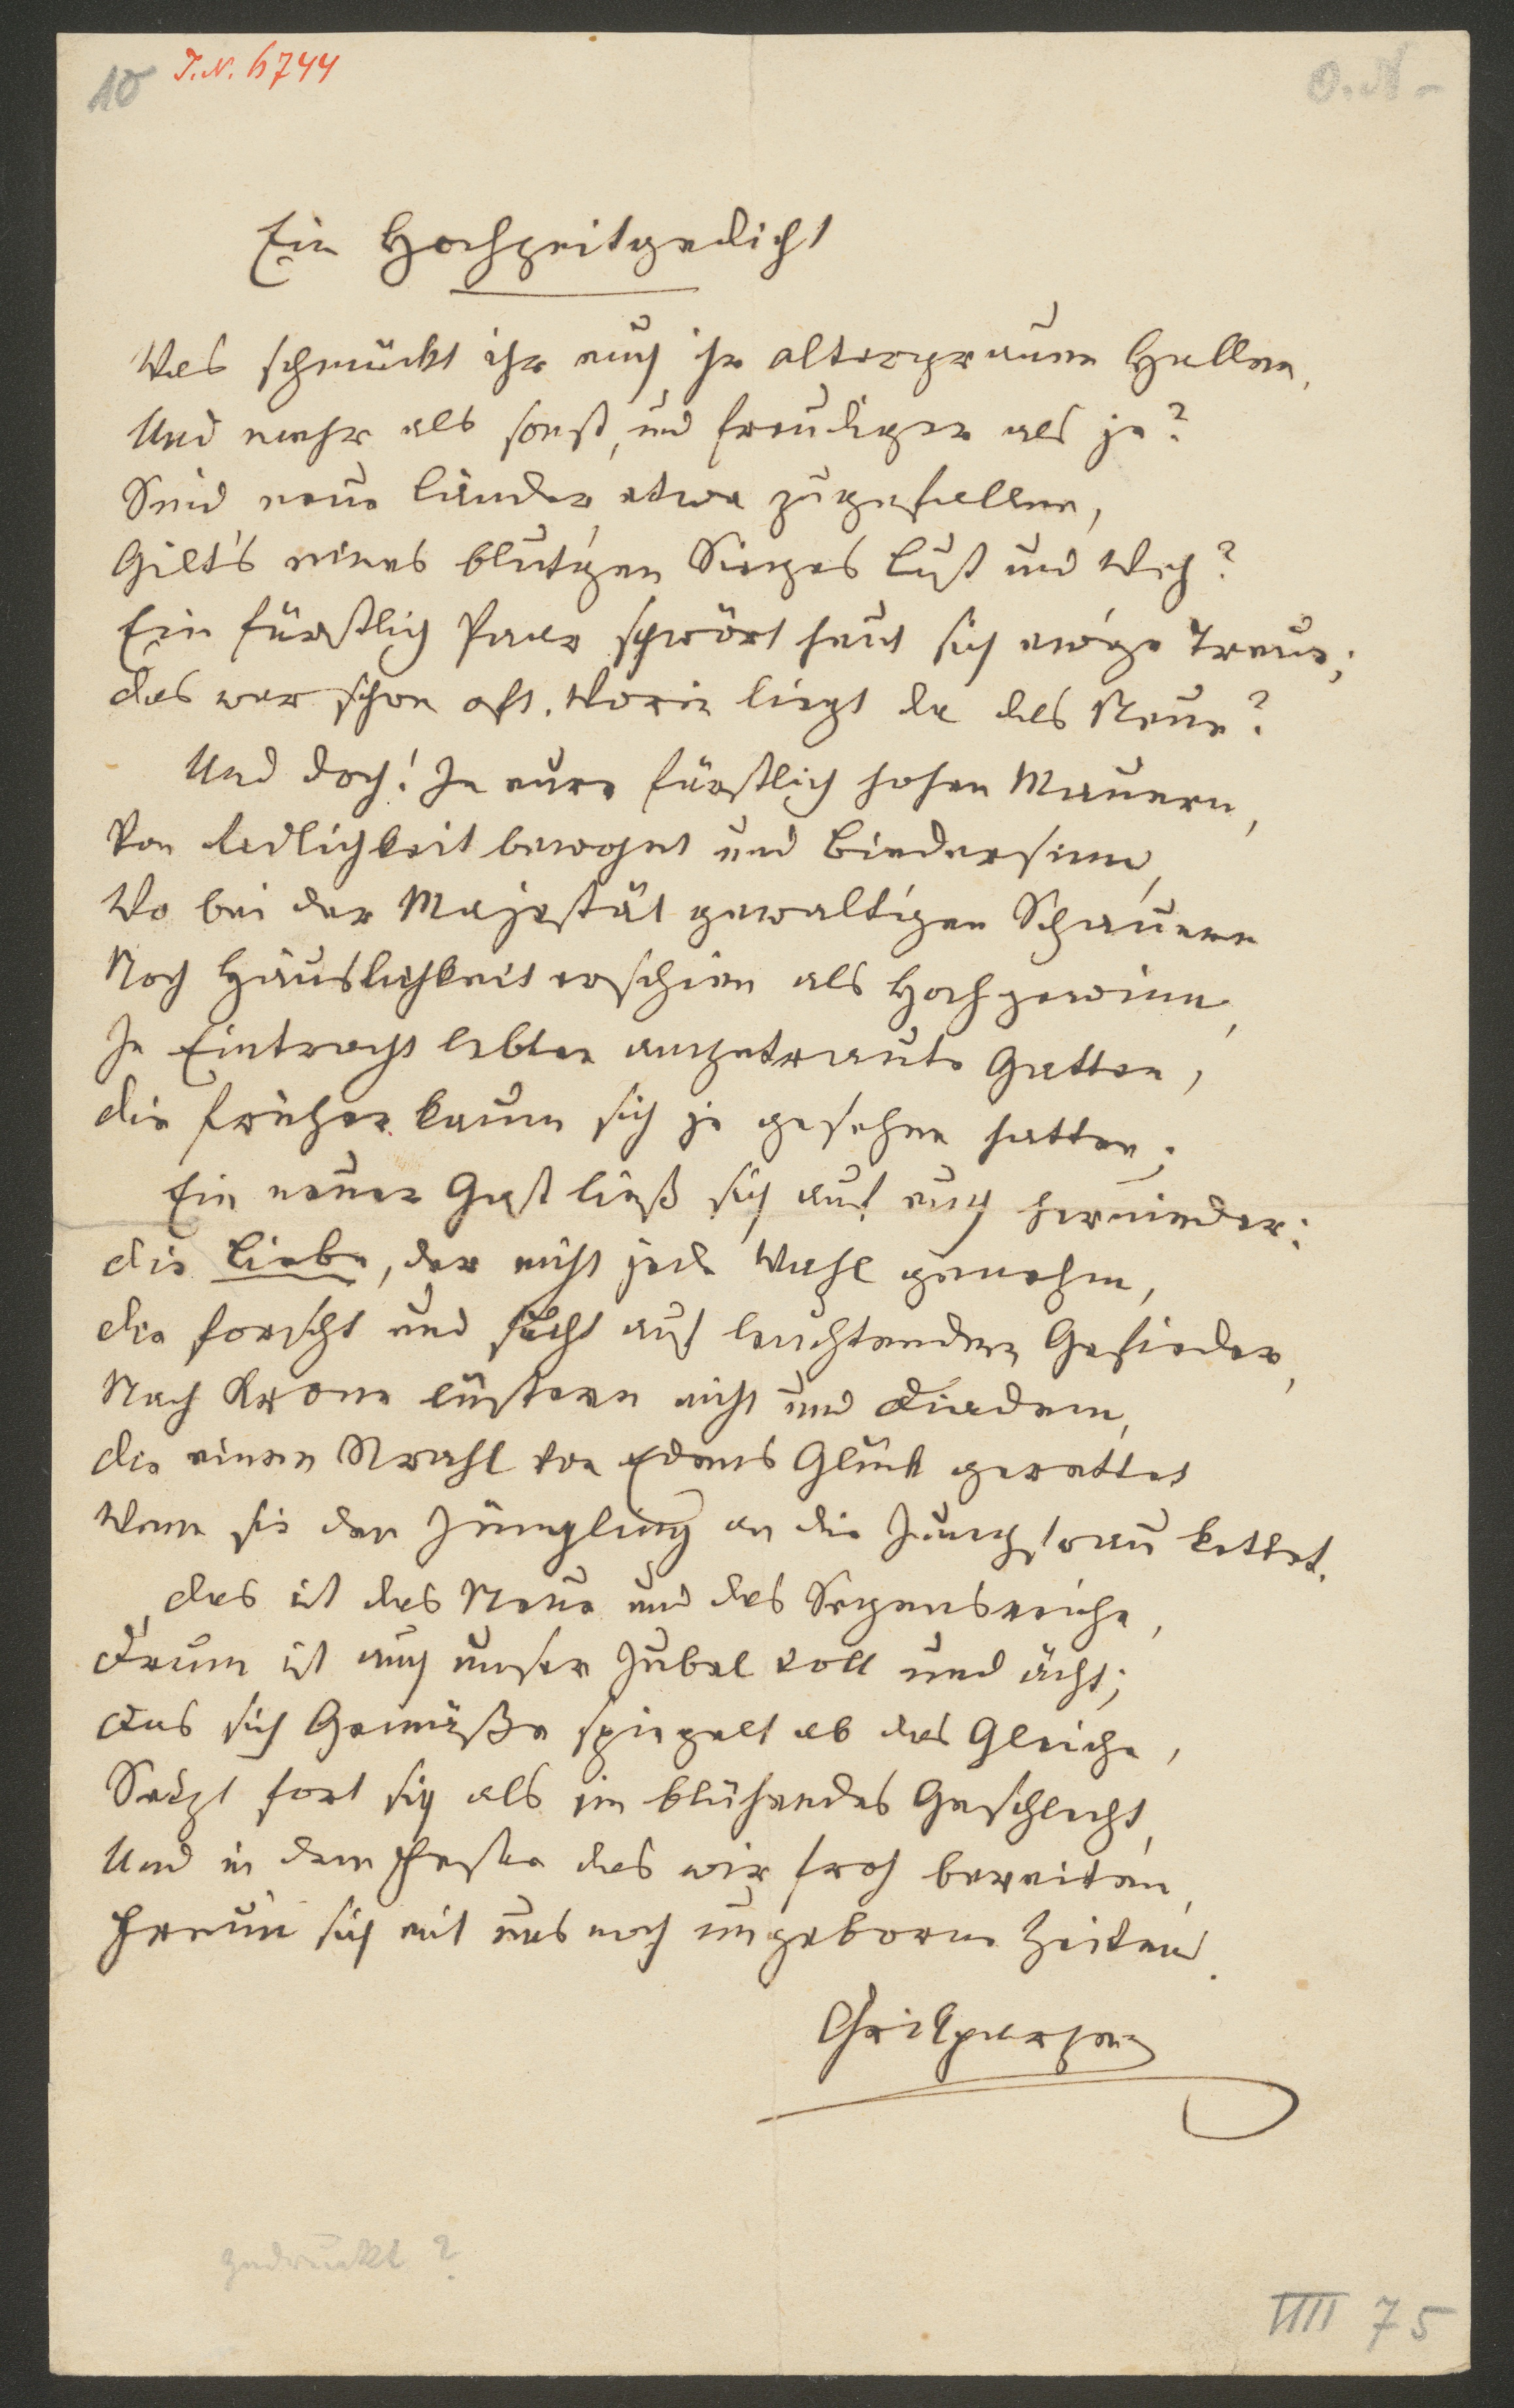 10
I.N. 6744
O.N.
Ein Hochzeitgedicht
Was schmückt ihr euch ihr altergrauen Hallen,
Und mehr als sonst, und freudiger als je?
Sind neue Länder etwa zugefallen,
Gilt's eines blut'gen Sieges Lust und Weh?
Ein fürstlich Paar schwört heut sich ew'ge Treue;
Das war schon oft. Worin liegt da das Neue?
Und doch! In eure fürstlich hohen Mauern,
Von Redlichkeit bewohnt und Biedersinn,
Wo bei der Majestät gewalt'gen Schauern
Noch Häuslichkeit erschien als Hochgewinn,
In Eintracht lebten angetraute Gatten,
Die früher kaum sich je gesehen hatten;
Ein neuer Gast ließ sich auf euch hernieder:
Die Liebe, der nicht jede Wahl genehm,
Die forscht und sucht auf leuchtendem Gefieder,
Nach Krone lüstern nicht und Diadem,
Die einen Strahl von Edens Glück gerettet
Wenn sie den Jüngling an die Jungfrau kettet.
Das ist das Neue und das Segensreiche,
Drum ist auch unser Jubel voll und ächt;
Das sich Gemäße spiegelt ab das Gleiche,
Setzt fort sich als ein blühendes Geschlecht,
Und in dem Feste das wir froh bereiten,
Freun sich mit uns noch ungeborne Zeiten.
Grillparzer
gedruckt?
VIII 75